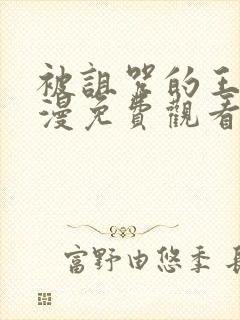 被詛咒的王
漫免費觀看
富野由悠季 長